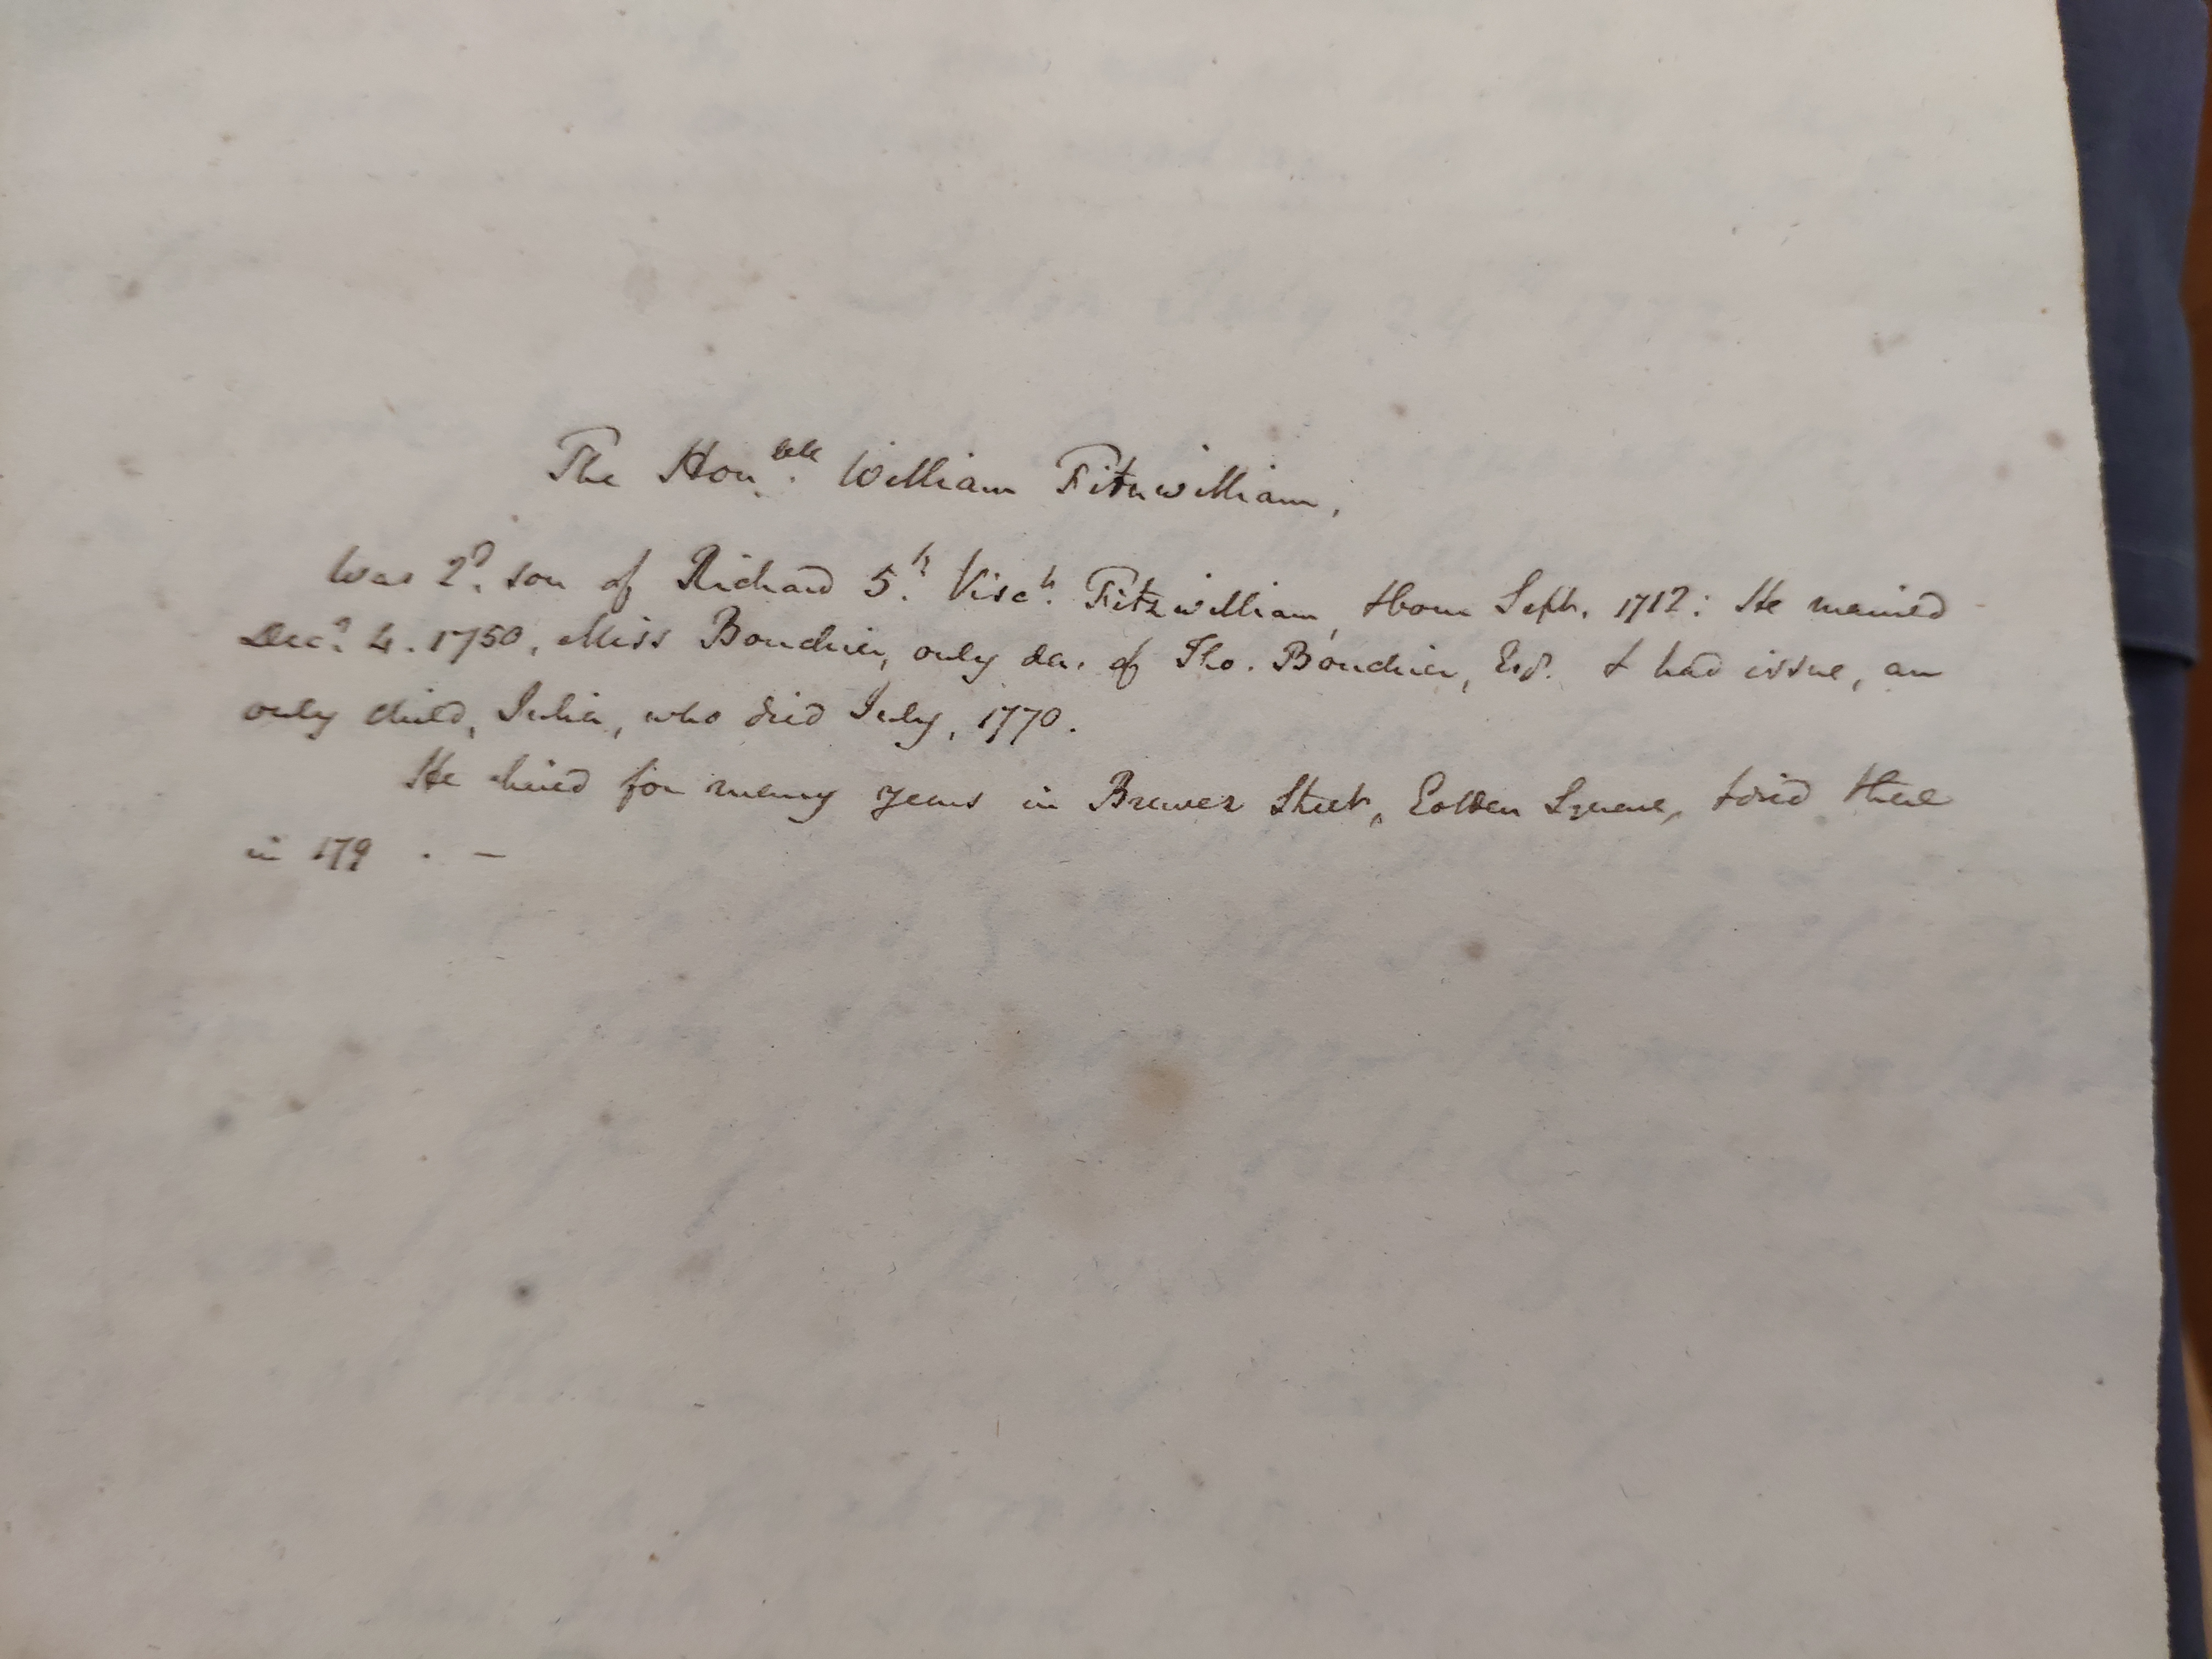 The Hon.ble William Fitzwilliam,
Was 2d. son of Richard 5.h Visc.t Fitzwilliam, & born Sept. 1712: He married
Decr. 4. 1750, Miss Bouchier, only da. of Tho. Bouchier, Esq. & had issue, an
only child, Julia, who died July, 1770.
He lived for many years in Brewer Street, Golden Square, & died there
in 179 . -